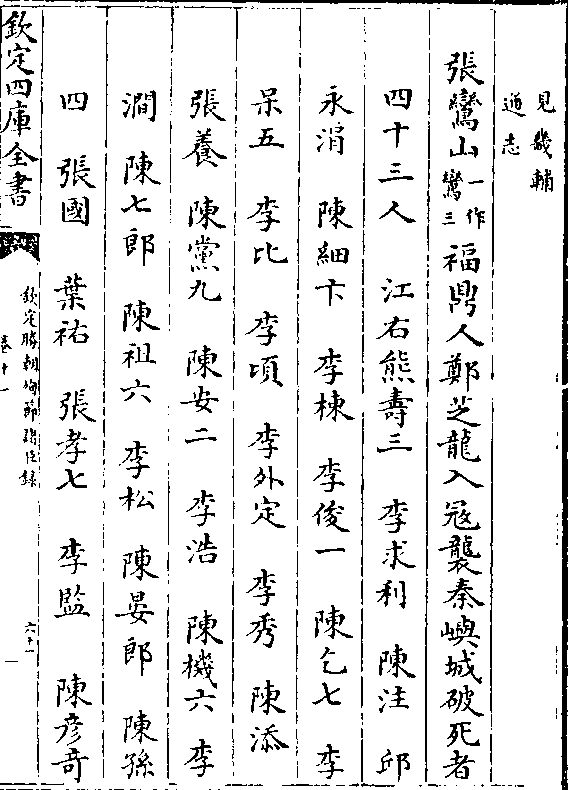 見畿輔
通志
張鸞山一作鸞三福鼎人鄭芝龍入冦襲秦嶼城破死者
四十三人　江右熊壽三　李求利　陳注　邱
永涓　陳細卞　李棟　李俊一　陳乞七　李
呆五　李比　李頃　李外定　李秀　陳添
張養　陳黨九　陳安二　李浩　陳機六　李
澗　陳七郎　陳祖六　李松　陳晏郎　陳孫
四　張國　葉祐　張孝七　李監　陳彦奇
欽定四庫全書
欽定勝朝殉節諸臣録
卷十一
六十一